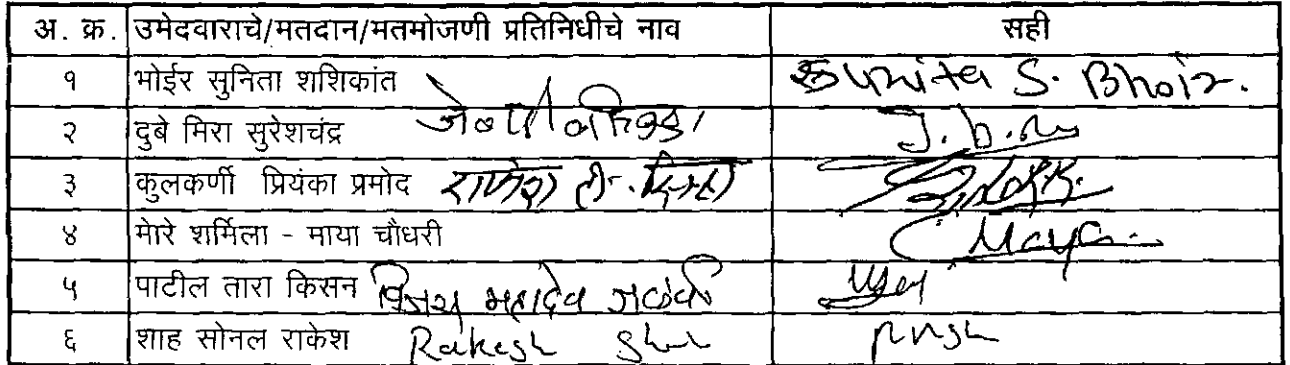 अ. क्र. उमेदवाराचे/मतदान/मतमोजणी प्रतिनिधीचे नाव सही
१ भोईर सुनिता शशिकांत Sunita S. Bhoir.
२ दुबे मिरा सुरेशचंद्र
३ कुलकर्णी प्रियंका प्रमोद
४ मोरे शर्मिला - माया चौधरी Maya
५ पाटील तारा किसन विजय महादेव
६ शाह सोनल राकेश Rakesh